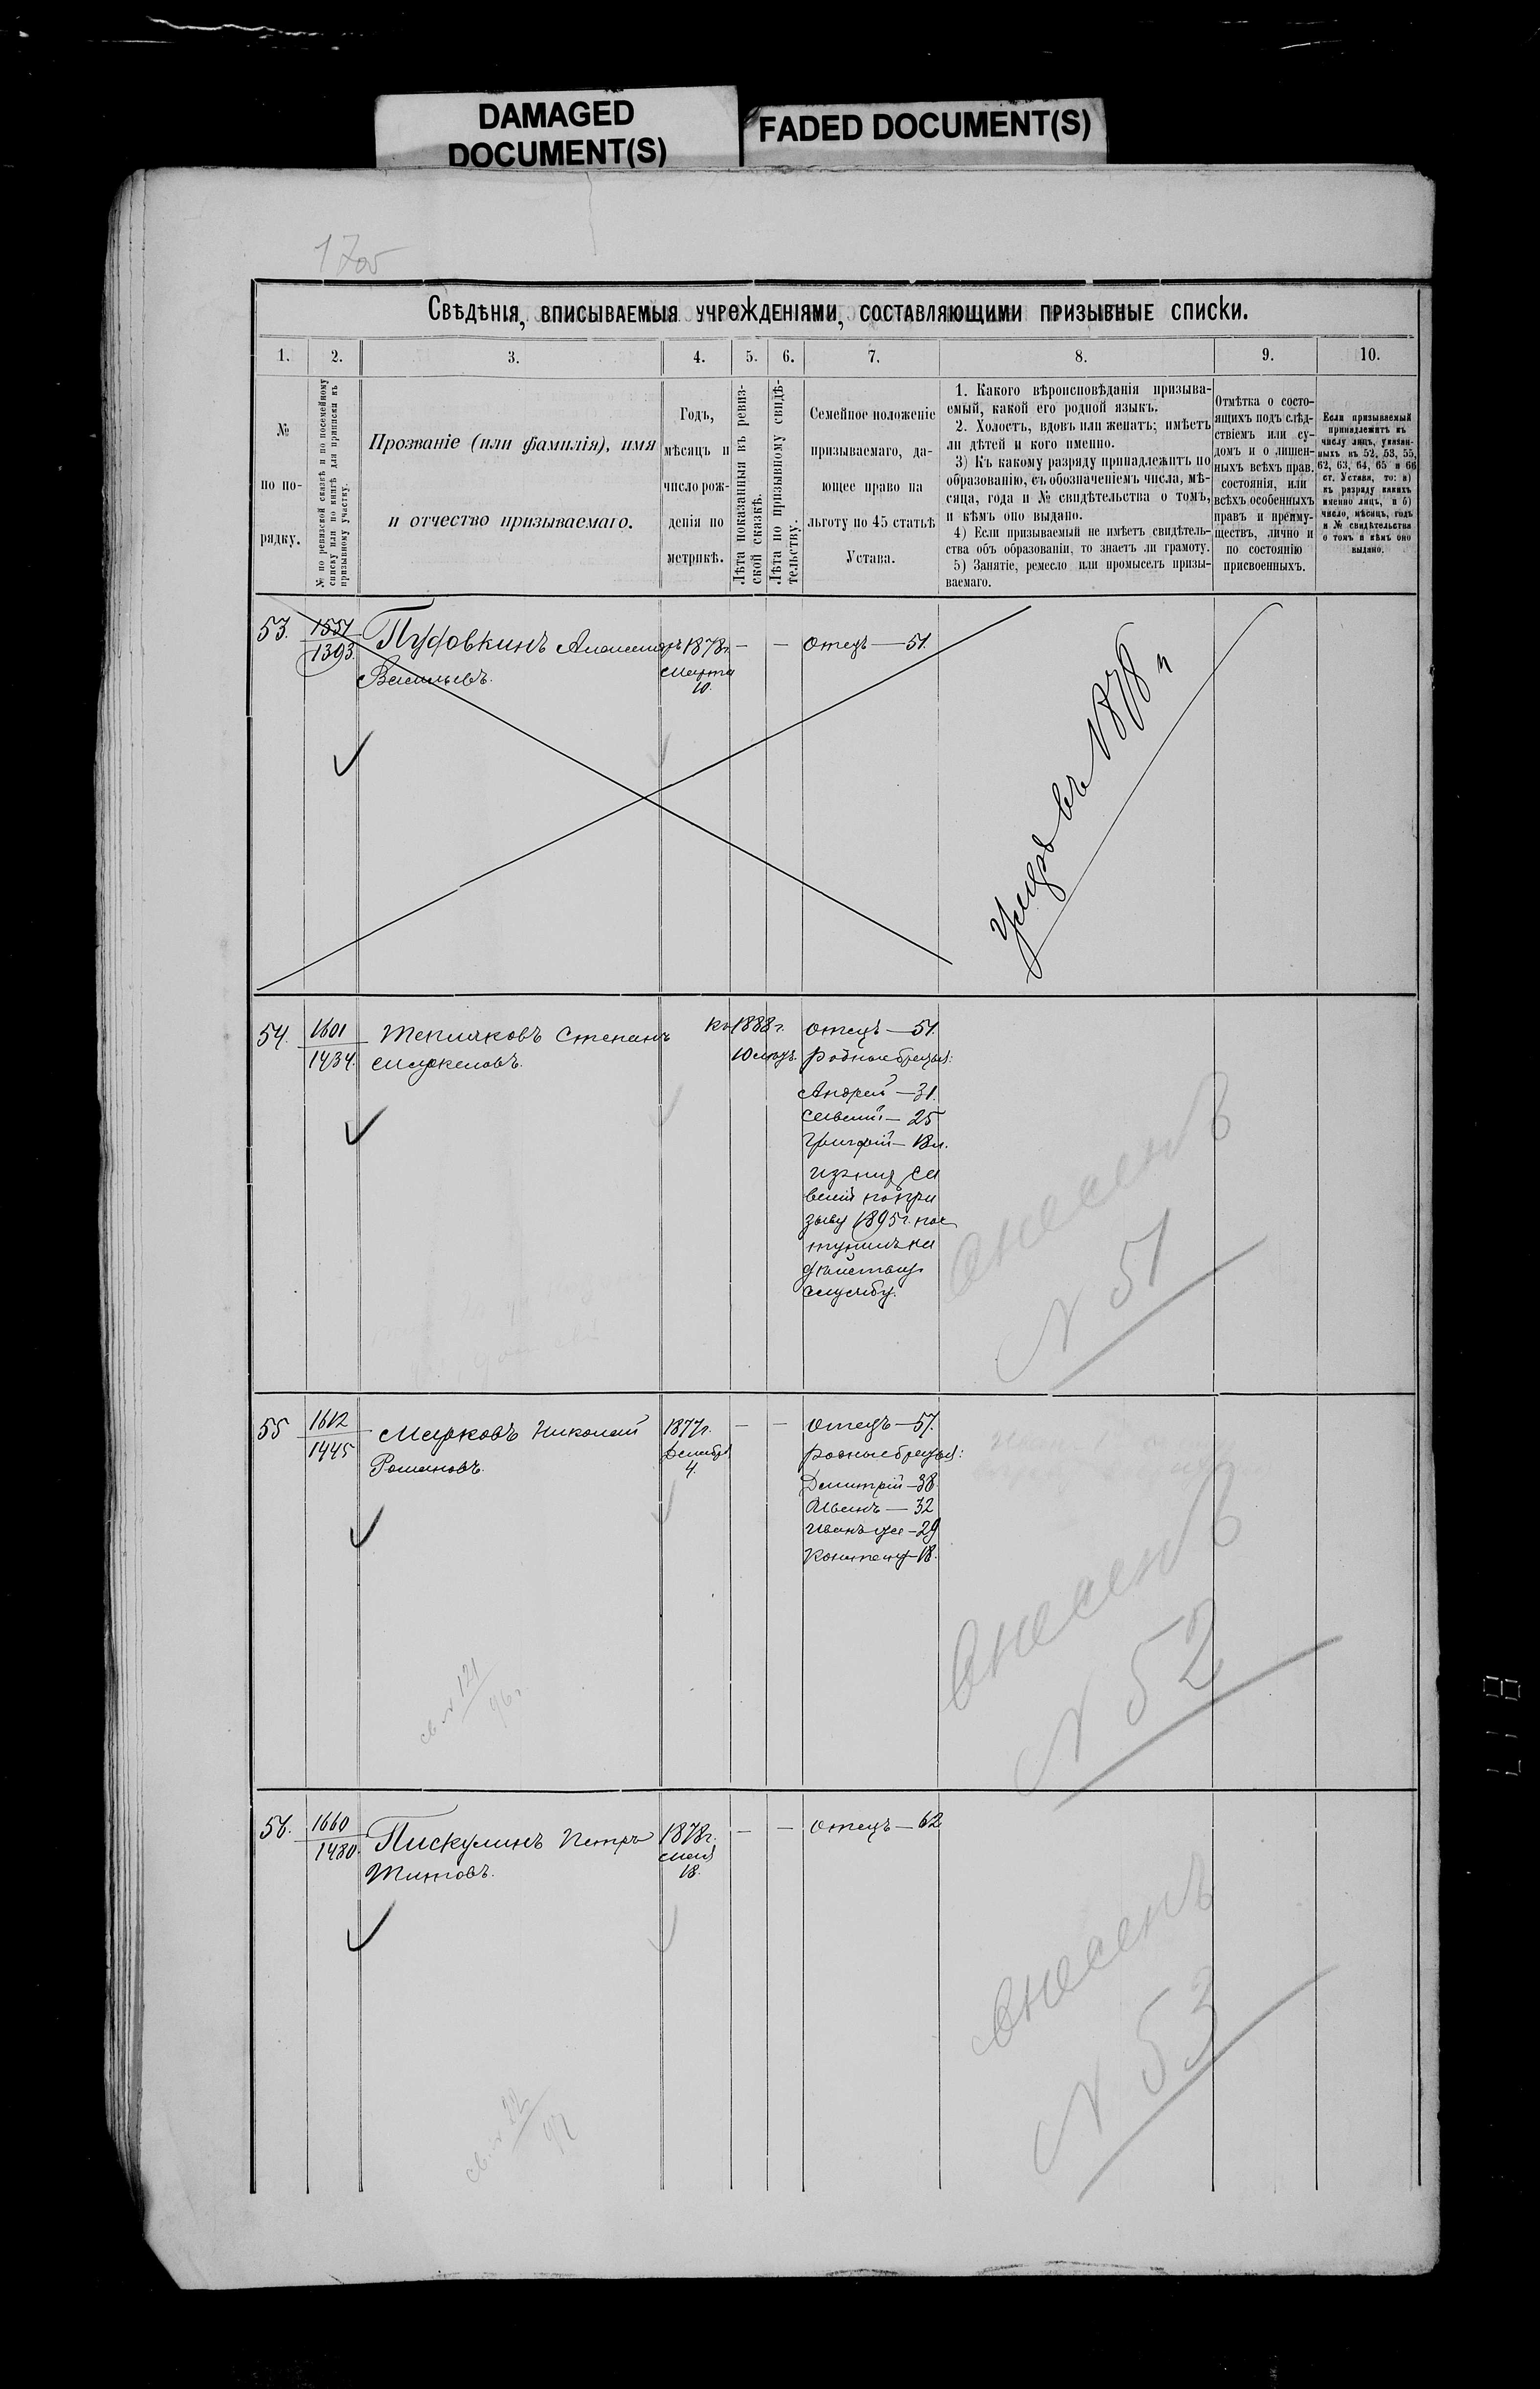 DAMAGED
DOCUMENT(S)
FADED DOCUMENT(S)
17об
Свѣдѣнія, вписываемыя учрежденіями, составляющими призывные списки.
1. 2. 3. 4. 5. 6. 7. 8. 9. 10.
№
по по-
рядку.
№ по ревизской сказкѣ и по посемейному
списку или по книгѣ для приписки къ
призывному участку.
Прозваніе (или фамилія), имя
и отчество призываемаго.
Годъ,
мѣсяцъ и
число рож-
денія по
метрикѣ.
Лѣта показанныя въ ревиз-
ской сказкѣ.
Лѣта по призывному свидѣ-
тельству.
Семейное положеніе
призываемаго, да-
ющее право на
льготу по 45 статьѣ
Устава.
1. Какого вѣроисповѣданія призыва-
емый, какой его родной языкъ.
2. Холостъ, вдовъ или женатъ; имѣетъ
ли дѣтей и кого именно.
3) Къ какому разряду принадлежитъ по
образованію, съ обозначеніемъ числа, мѣ-
сяца, года и № свидѣтельства о томъ,
и кѣмъ оно выдано.
4) Если призываемый не имѣетъ свидѣтель-
ства объ образованіи, то знаетъ ли грамоту.
5) Занятіе, ремесло или промыселъ призы-
ваемаго.
Отмѣтка о состо-
ящихъ подъ слѣд-
ствіемъ или су-
домъ и о лишен-
ныхъ всѣхъ прав.
состоянія, или
всѣхъ особенныхъ
правъ и преиму-
ществъ, лично и
по состоянію
присвоенныхъ.
Если призываемый
принадлежитъ къ
числу лицъ, указан-
ныхъ въ 52, 53, 55,
62, 63, 64, 65 и 66
ст. Устава, то: а)
къ разряду какихъ
именно лицъ, и б)
число, мѣсяцъ, годъ
и № свидѣтельства
о томъ и кѣмъ оно
выдано.
53. 1551 Пуфовкинъ Александръ 1878г. — — Отецъ — 51.
1393. Васильевъ. Марта
10.
Умеръ въ 1878 г
54. 1601 Тепляковъ Степанъ къ 1888 г. Отецъ — 51.
1434. Маркеловъ. 10 мѣсяц. Родные братья:
Андрей — 31.
Савелій — 25
Григорій — 18 л.
изъ нихъ Са
велій по при
зыву 1895 г. пос
тупилъ на
дѣйствит
службу.
внесенъ
№ 51
55 1612 Марковъ Николай 1877г. — — Отецъ — 57.
1445 Романовъ. Декабря Родные братья:
4. Дмитрій — 38
Иванъ — 32
Иванъ же — 29
Констант — 18.
внесенъ
№ 52
св № 121
96 г
56. 1660 Пискулинъ Петръ 1878г. — — Отецъ — 62
1480. Титовъ. Мая
18.
внесенъ
№ 53
св. №
97